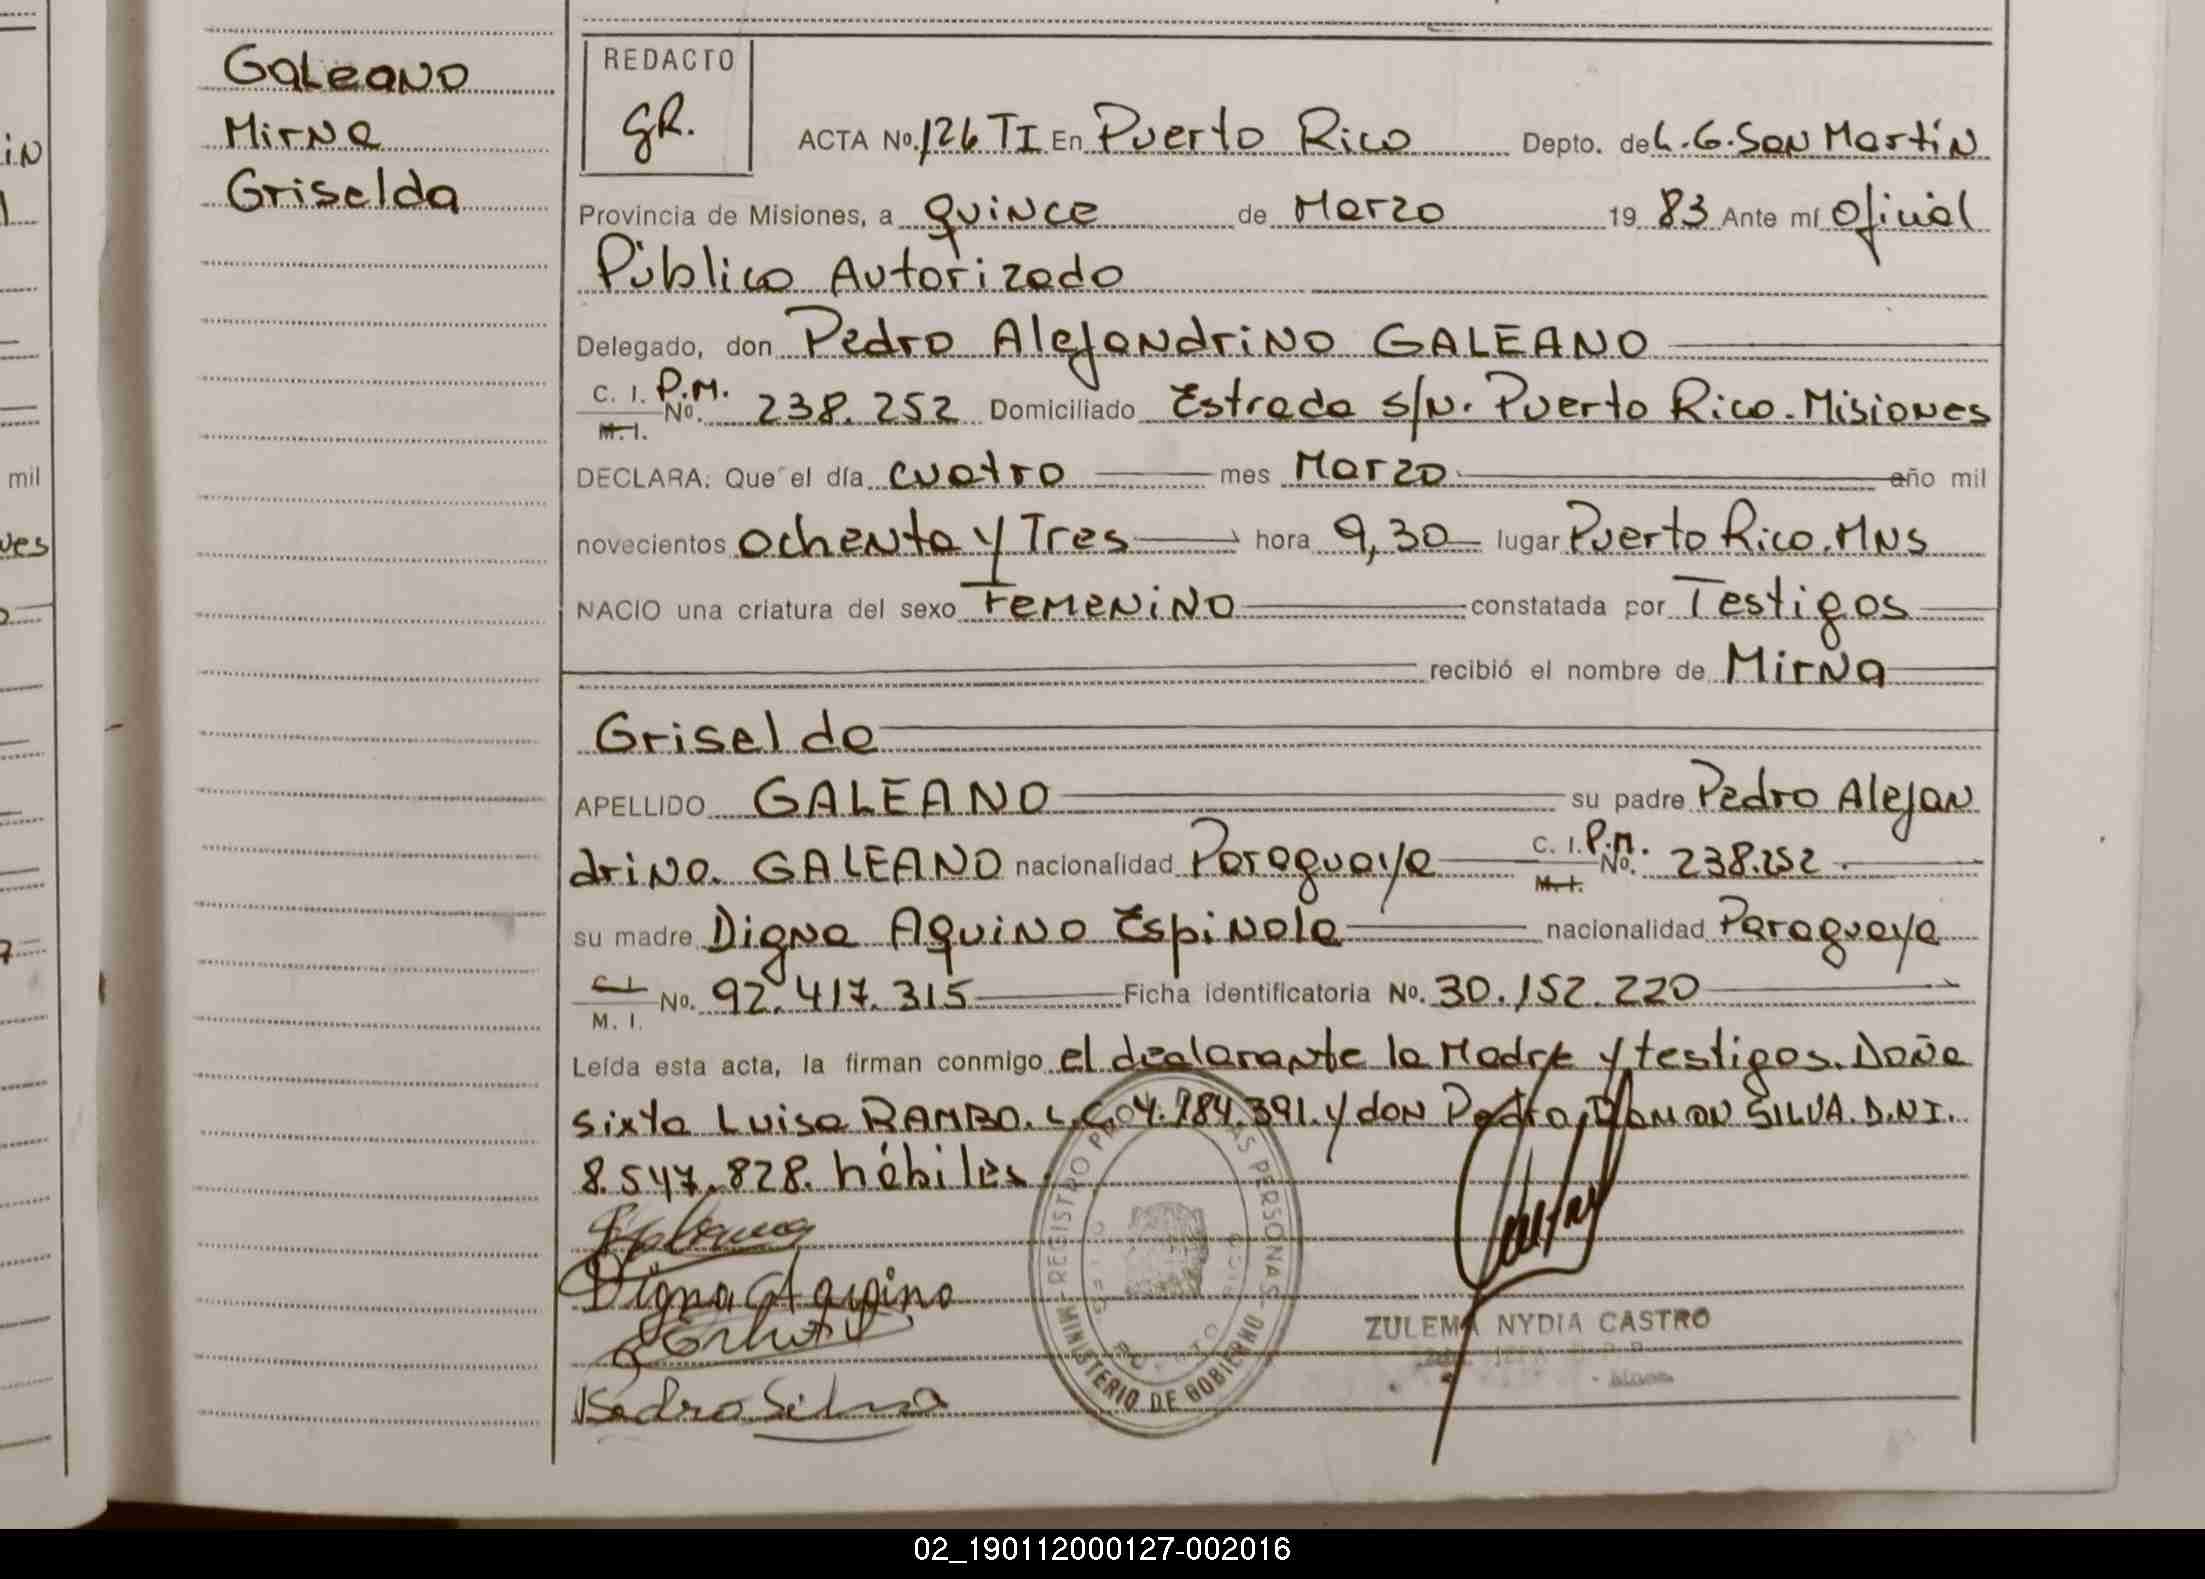 Galeano
Mirna
Griselda
REDACTO
GR.
ACTA No. 126 TI En Puerto Rico Depto. de L. G. San Martín
Provincia de Misiones, a quince de Marzo 19 83 Ante mí Oficial
Público Autorizado
Delegado, don Pedro Alejandrino GALEANO
C. I. P.M.
M. I. No. 238.252 Domiciliado Estrada s/N. Puerto Rico. Misiones
DECLARA: Que el día cuatro mes Marzo año mil
novecientos ochenta y Tres hora 9,30 lugar Puerto Rico. MNS
NACIO una criatura del sexo Femenino constatada por Testigos
recibió el nombre de Mirna
Griselda
APELLIDO GALEANO su padre Pedro Alejan
drino. GALEANO nacionalidad Paraguaya C. I. P.M. M. I. No. 238.252.
su madre Digna Aquino Espinola nacionalidad Paraguaya
C. I. M. I. No. 92.417.315 Ficha identificatoria No. 30.152.220
Leída esta acta, la firman conmigo el declarante la Madre y testigos. Doña
sixta Luisa RAMBO. L.C. 04.784.391. y don Pedro Ramon SILVA. D.NI.
8.547.828. hábiles.
Digna Aquino
Pedro Silva
REGISTRO PERSONAS
MINISTERIO DE GOBIERNO
ZULEMA NYDIA CASTRO
mil
ves
iN
02_190112000127-002016